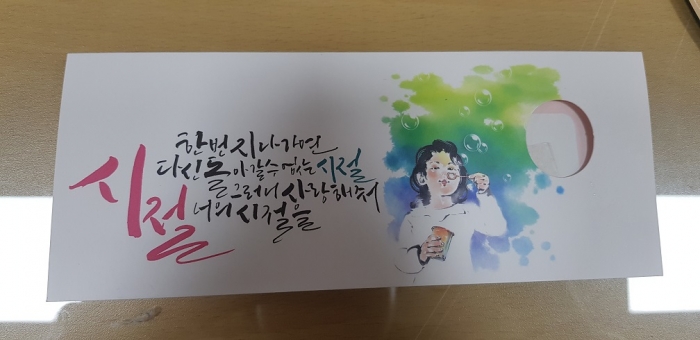 시절
한번 지나가면
다신 돌아갈 수 없는 시절
그러니 사랑해줘
너의 시절을